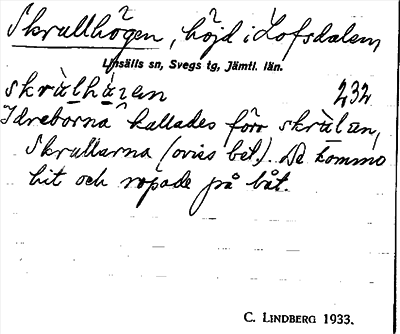 Skrullhögen, höjd i Lofsdalen,
Linsälls sn, Svegs tg, Jämtl. län.
skrùlhö̀gen 232
Idreborna kallades förr skrùlan,
Skrullarna (oviss bet.). De kommo
hit och ropade på båt.
C. LINDBERG 1933.